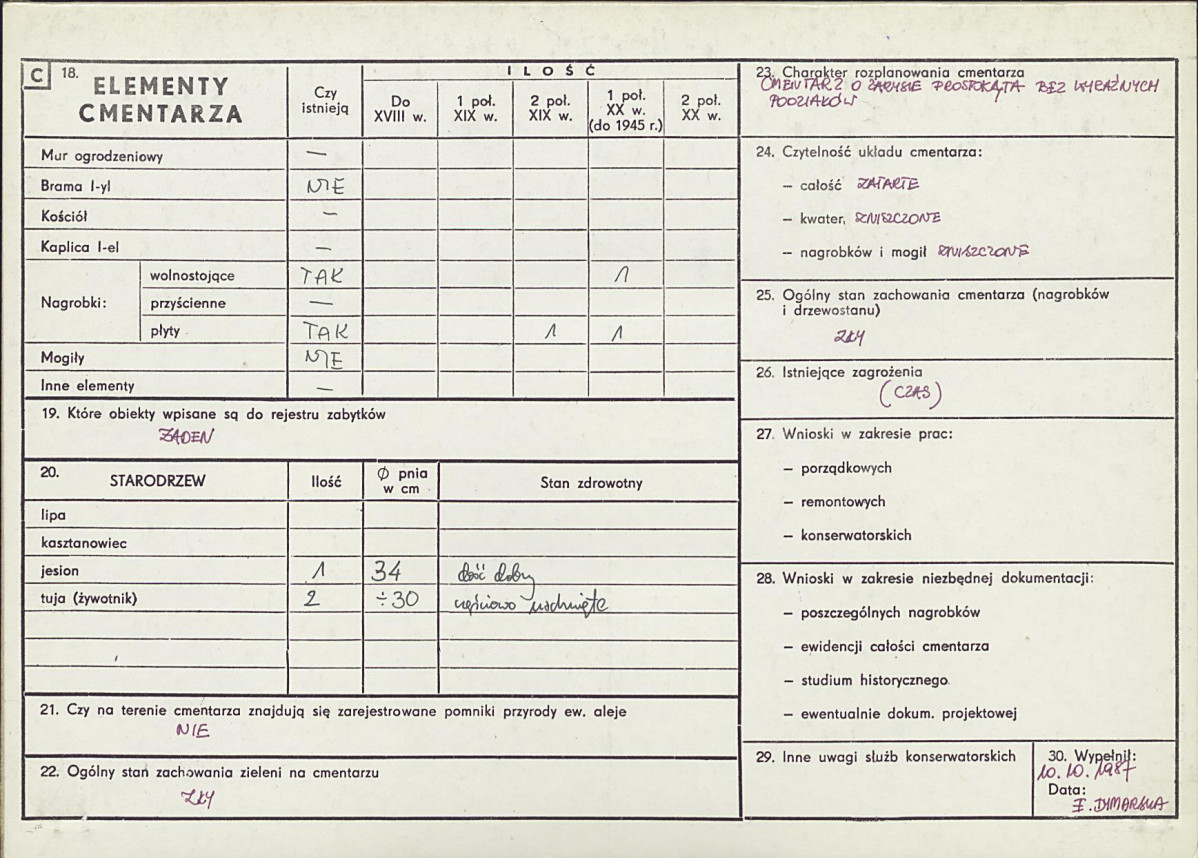 C 18. ELEMENTY CMENTARZA
Czy istnieją
ILOŚĆ
Do XVIII w.
1 poł. XIX w.
2 poł. XIX w.
1 poł. XX w. (do 1945 r.)
2 poł. XX w.
Mur ogrodzeniowy —
Brama I-yl NIE
Kościół —
Kaplica I-el —
Nagrobki:
wolnostojące TAK 1
przyścienne —
płyty TAK 1 1
Mogiły NIE
Inne elementy —
19. Które obiekty wpisane są do rejestru zabytków
ŻADEN
20. STARODRZEW Ilość Ø pnia w cm Stan zdrowotny
lipa
kasztanowiec
jesion 1 34 dość dobry
tuja (żywotnik) 2 ÷30 częściowo uschnięte
21. Czy na terenie cmentarza znajdują się zarejestrowane pomniki przyrody ew. aleje
NIE
22. Ogólny stan zachowania zieleni na cmentarzu
ZŁY
23. Charakter rozplanowania cmentarza
CMENTARZ O ZARYSIE PROSTOKĄTA BEZ WYRAŹNYCH
PODZIAŁÓW
24. Czytelność układu cmentarza:
– całość ZATARTE
– kwater, ZNISZCZONE
– nagrobków i mogił ZNISZCZONE
25. Ogólny stan zachowania cmentarza (nagrobków
i drzewostanu)
ZŁY
26. Istniejące zagrożenia
(CZAS)
27. Wnioski w zakresie prac:
– porządkowych
– remontowych
– konserwatorskich
28. Wnioski w zakresie niezbędnej dokumentacji:
– poszczególnych nagrobków
– ewidencji całości cmentarza
– studium historycznego
– ewentualnie dokum. projektowej
29. Inne uwagi służb konserwatorskich
30. Wypełnił:
10.10.1987
Data:
I. DYMARSKA